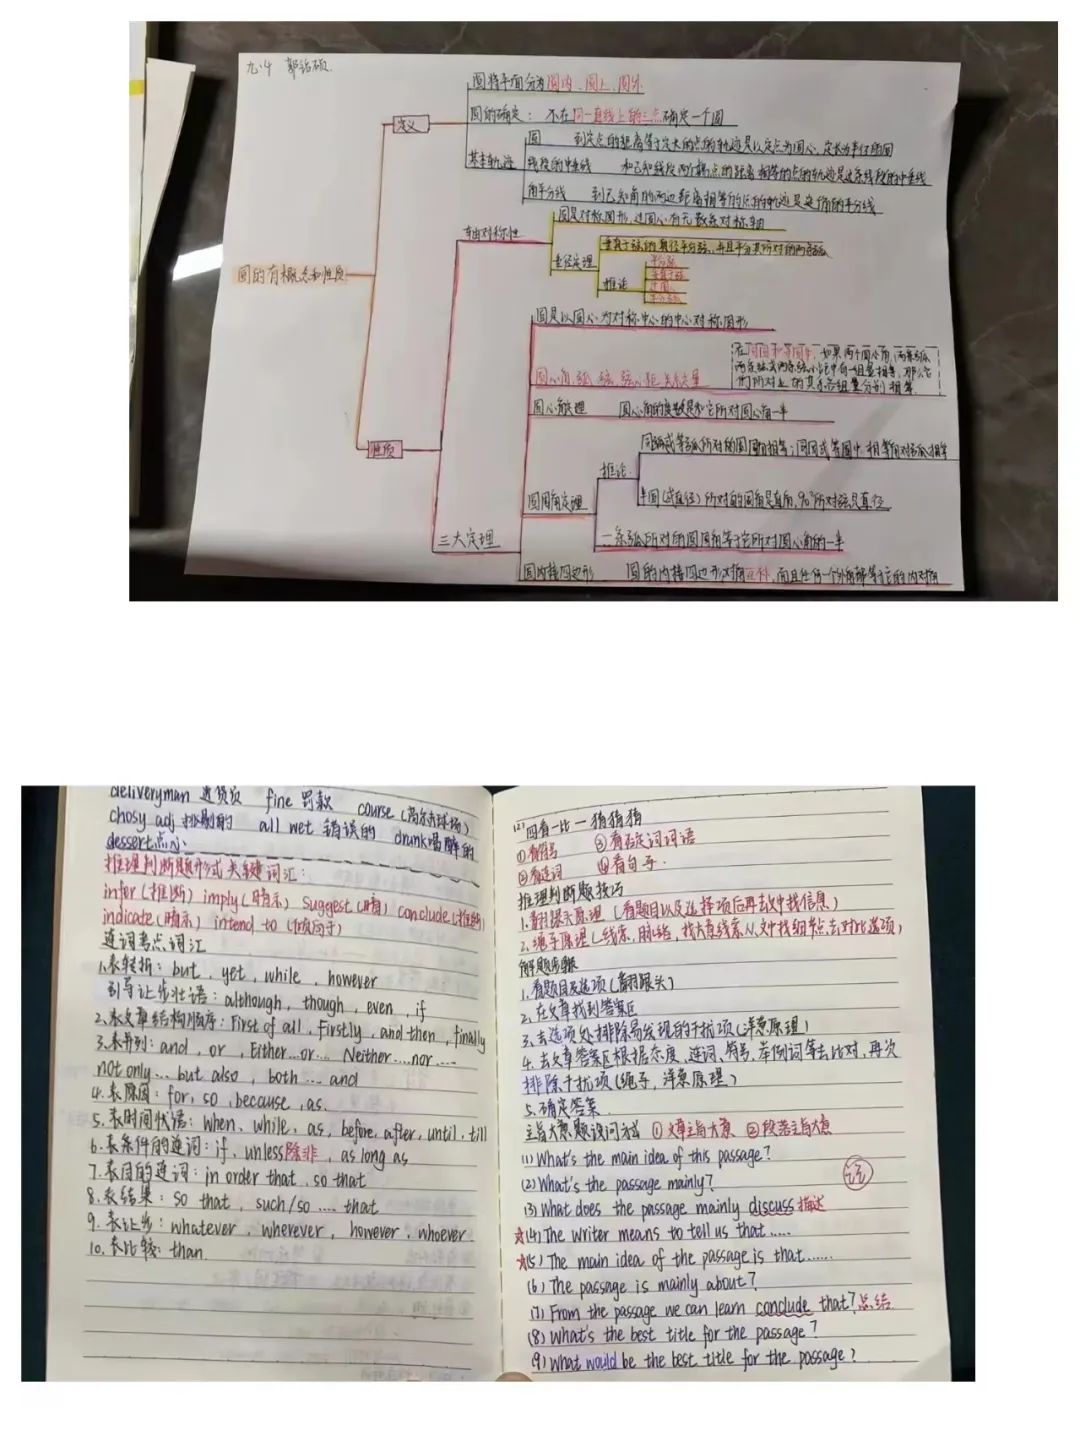 九.4
圆将平面分为圆内、圆上、圆外
定义
圆的确定: 不在同一直线上的三点确定一个圆
圆 到定点的距离等于定长的点的轨迹是以定点为圆心,定长为半径的圆
基本轨迹 线段的中垂线 和已知线段两个端点的距离相等的点的轨迹是这条线段的中垂线
角平分线 到已知角的两边距离相等的点的轨迹是这角的平分线
圆是对称图形,过圆心有无数条对称轴
轴对称性
垂直于弦的直径平分弦,并且平分其所对的两条弧
垂径定理
推论
平分弦
垂直于弦
过圆心
平分弧
圆的有概念和性质
圆是以圆心为对称中心的中心对称图形
在同圆和等圆中,如果两个圆心角,两条弧
两条弦或两条弦心距中有一组量相等,那么它
们所对应的其余各组量分别相等.
圆心角,弧,弦,弦心距关系定理
圆心角定理 圆心角的度数是和它所对圆心角一半
性质
同弧或等弧所对的圆周角相等;同圆或等圆中,相等角对弧相等
推论
半圆(或直径)所对的圆周角是直角,90°所对弦是直径
圆周角定理
一条弧所对的圆周角等于它所对圆心角的一半
三大定理
圆内接四边形 圆的内接四边形对角互补,而且任何一个外角都等于它的内对角
deliveryman 送货员 fine 罚款 course (高尔夫球场)
chosy adj 挑剔的 all wet 错误的 drunk喝醉的
dessert点心
推理判断题形式关键词汇:
infer (推断) imply (暗示) suggest (暗) conclude (推断)
indicate (暗示) intend to (倾向于)
连词考点词汇
1.表转折: but, yet, while, however
引导让步状语: although, though, even, if
2.表文章结构顺序: First of all, Firstly, and then, finally
3.表并列: and, or, Either...or... Neither....nor....
not only... but also, both ... and
4.表原因: for, so, because, as.
5.表时间状语: when, while, as, before, after, until, till
6.表条件的连词: if, unless除非, as long as
7.表目的连词: in order that, so that
8.表结果: so that, such/so .... that
9.表让步: whatever, wherever, however, whoever
10.表比较: than.
(2) 四看一比一猜猜猜
①看符号 ③看否定词词语
②看连词 ④看句子.
推理判断题技巧
1.翻跟头原理 (看题目以及选择项后再去文中找信息)
2.绳子原理 (线索,用绳,找大意线索从文中找细节点去对比选项)
解题步骤
1.看题目及选项(翻跟头)
2.在文章找到答案区
3.去选项处排除易发现的干扰项(洋葱原理)
4.去文章答案区根据态度、连词、符号、举例词等去比对,再次
排除干扰项(绳子,洋葱原理)
5.确定答案.
主旨大意题设问方式 ①文章主旨大意 ②段落主旨大意
(1) What's the main idea of this passage?
(2) What's the passage mainly?
(3) What does the passage mainly discuss 描述
★(4) The writer means to tell us that.....
★(5) The main idea of the passage is that......
(6) The passage is mainly about?
(7) From the passage we can learn conclude that? 总结
(8) What's the best title for the passage?
(9) What would be the best title for the passage?